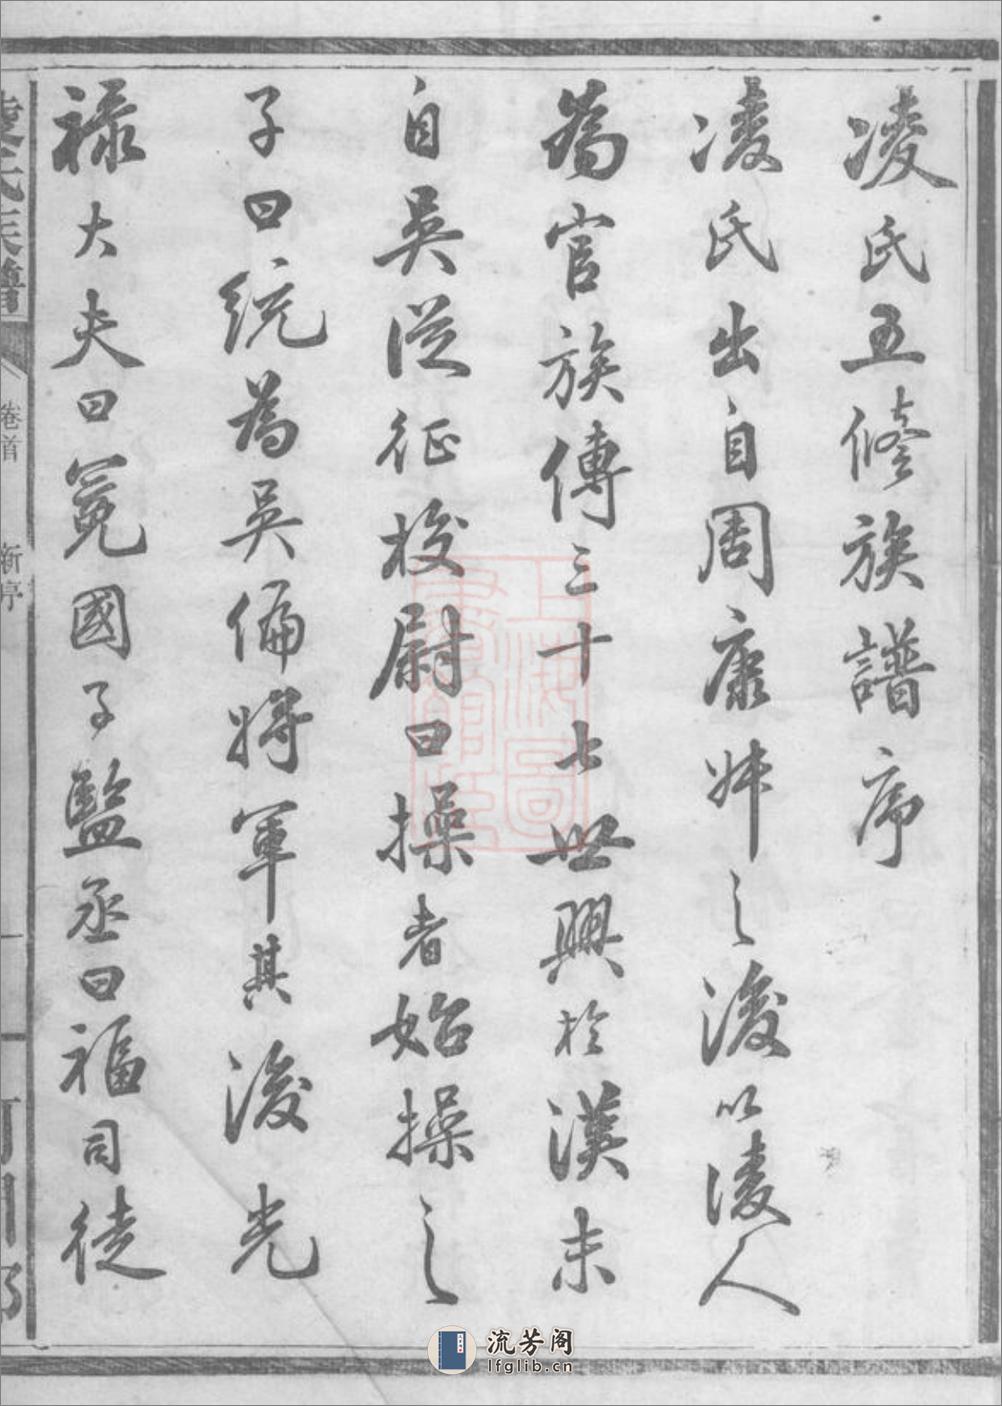 凌氏五修族譜序
凌氏出自周康叔之後以凌人
為官族傳三十七世興於漢末
自吳從征校尉曰操者始操之
子曰統為吳偏將軍其後光
祿大夫曰冕國子監丞曰福司徒
凌氏族譜
卷首
新序
一
河間郡
上海圖書館藏
流芳阁
lfglib.cn